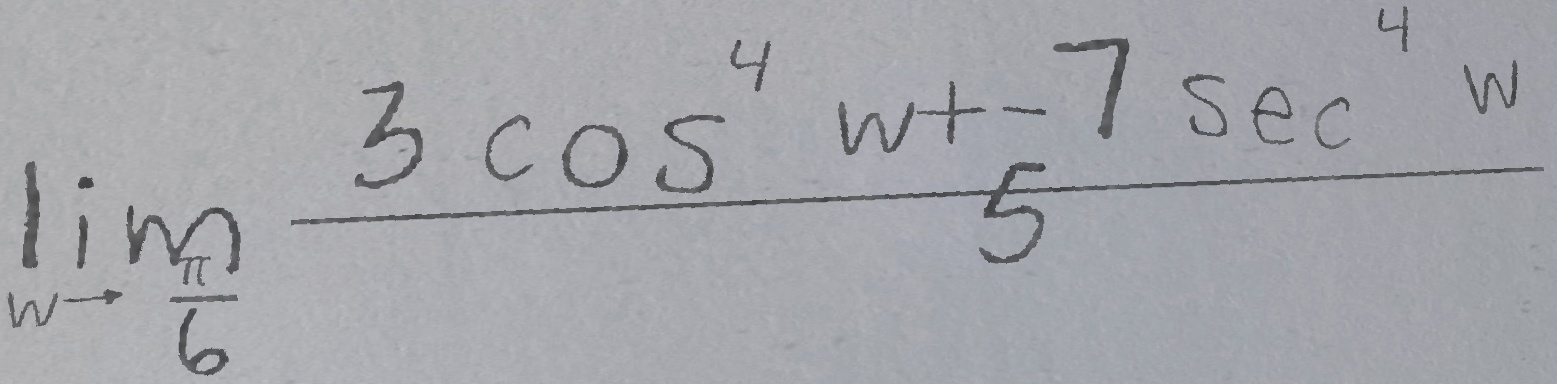 \lim_{w \to \frac{\pi}{6}} \frac{3 \cos^4 w + -7 \sec^4 w}{5}